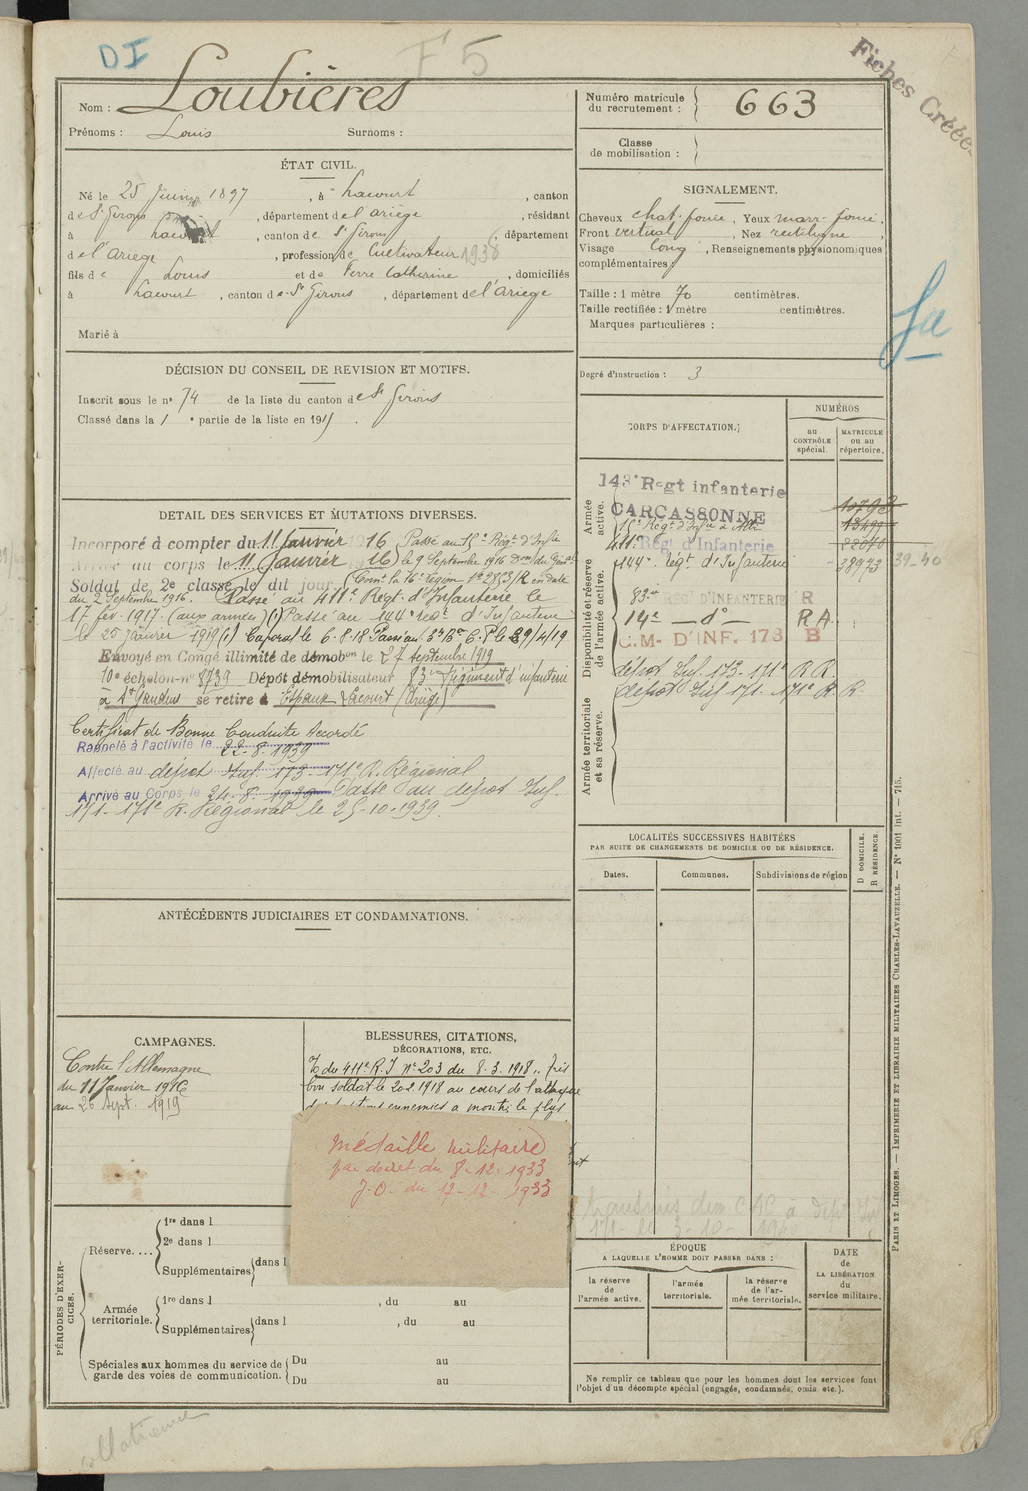 DI
F 5
Fiches Créées
Nom : Loubières
Prénoms : Louis Surnoms :
Numéro matricule du recrutement : 663
Classe de mobilisation :
ÉTAT CIVIL.
Né le 25 Juin 1897, à Lacourt, canton
de St Girons, département de l'ariège, résidant
à Lacourt, canton de St Girons, département
de l'Ariège, profession de Cultivateur 1938
fils de Louis et de Ferre Catherine, domiciliés
à Lacourt, canton de St Girons, département de l'Ariège
Marié à
SIGNALEMENT.
Cheveux chat. foncé, Yeux marr. foncé,
Front vertical, Nez rectiligne,
Visage long, Renseignements physionomiques
complémentaires :
Taille : 1 mètre 70 centimètres.
Taille rectifiée : 1 mètre centimètres.
Marques particulières :
Degré d'instruction : 3
DÉCISION DU CONSEIL DE REVISION ET MOTIFS.
Inscrit sous le no 74 de la liste du canton de St Girons
Classé dans la 1e partie de la liste en 1915.
DÉTAIL DES SERVICES ET MUTATIONS DIVERSES.
Incorporé à compter du 11 Janvier 1916 Passé au 15e Régt d'Infie
Arrivé au corps le 11 Janvier 1916 le 9 Septembre 1916 Don du Génal
Soldat de 2e classe le dit jour. Comt la 16e région no 2853/R en date
du 2 Septembre 1916. Passé au 411e Regt d'Infanterie le
17 fév. 1917. (aux armées) (1) Passé au 144e régt d'Infanterie
le 25 janvier 1919 (1) Caporal le 6.8.18
Envoyé en Congé illimité de démobon le 27 septembre 1919
10e échelon no 8739 Dépôt démobilisateur 83e Régiment d'infanterie
à St Gaudens se retire à Lacourt (Ariège)
Certificat de Bonne Conduite Accordé
Rappelé à l'activité le 22-8-1939
Affecté au dépot Inf. 173-171e R. Régional
Arrivé au Corps le 24-8-1939 Passé au dépot Inf.
171-171e R. Régional le 25-10-1939.
CORPS D'AFFECTATION.
NUMÉROS
au contrôle spécial.
matricule ou au répertoire.
Armée active.
Disponibilité et réserve de l'armée active.
Armée territoriale et sa réserve.
143e Regt infanterie
CARCASSONNE
15e Régt d'Infie à Albi
411e Régt d'Infanterie
144e Régt d'Infanterie 28973 39-40
83e REGt D'INFANTERIE R
14e — do — R A
C.M- D'INF. 173 B
dépot Inf. 173-171e R R.
dépot Inf 171-171e R R.
LOCALITÉS SUCCESSIVES HABITÉES
PAR SUITE DE CHANGEMENTS DE DOMICILE OU DE RÉSIDENCE.
Dates. Communes. Subdivisions de région
D DOMICILE.
R RÉSIDENCE.
ANTÉCÉDENTS JUDICIAIRES ET CONDAMNATIONS.
CAMPAGNES.
Contre l'Allemagne
du 11 Janvier 1916
au 26 Sept. 1919
BLESSURES, CITATIONS,
DÉCORATIONS, ETC.
du 411e R.I no 203 du 8.3.1918 "très
bon soldat le 20.2.1918 au cours de l'attaque
ennemies a montré le plus
Médaille militaire
par décret du 8-12-1933
J.O. du 17-12-1933
PÉRIODES D'EXERCICES.
Réserve....
1re dans l
2e dans l
Supplémentaires dans l
Armée territoriale.
1re dans l , du au
Supplémentaires dans l , du au
Spéciales aux hommes du service de garde des voies de communication.
Du au
Du au
ÉPOQUE
A LAQUELLE L'HOMME DOIT PASSER DANS :
la réserve de l'armée active.
l'armée territoriale.
la réserve de l'armée territoriale.
DATE de LA LIBÉRATION du service militaire.
Ne remplir ce tableau que pour les hommes dont les services font
l'objet d'un décompte spécial (engagés, condamnés, omis etc.).
PARIS ET LIMOGES. — IMPRIMERIE ET LIBRAIRIE MILITAIRES CHARLES-LAVAUZELLE. — No 1001 int. — 715.